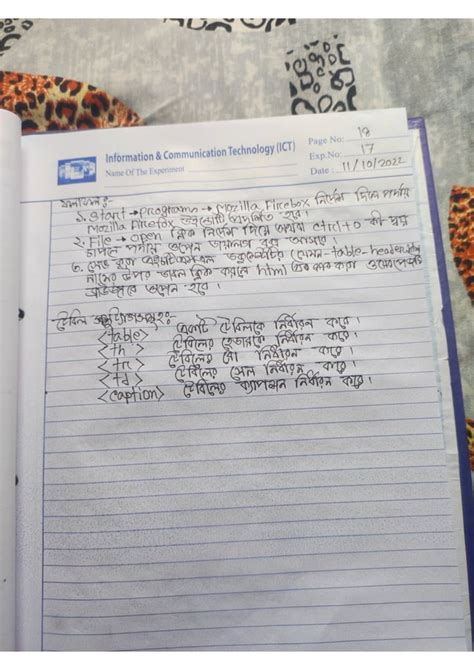 Information & Communication Technology (ICT)
Name Of The Experiment
Page No: 18
Exp.No: 17
Date : 11/10/2022
ফলাফল:-
১. Start → Programm → Mozilla Firebox নির্দেশ দিলে পর্দায়
Mozilla Firefox উইন্ডোটি প্রদর্শিত হবে।
২. File → open ক্লিক নির্দেশ দিয়ে অথবা ctrl+o কী-দ্বয়
চাপলে পর্দায় ওপেন ডায়ালগ বক্স আসবে।
৩. সেভ করা এইচটিএমএল ডকুমেন্টটির যেমন- table-header
নামের উপর ডাবল ক্লিক করলে html
ওপেন হবে।
টেবিল ট্যাগসমূহ:-
<table> একটি টেবিলকে নির্ধারন করে।
<th> টেবিলের হেডারকে নির্ধারন করে।
<tr> টেবিলের রো নির্ধারন করে।
<td> টেবিলের সেল নির্ধারন করে।
<caption> টেবিলের ক্যাপশন নির্ধারন করে।